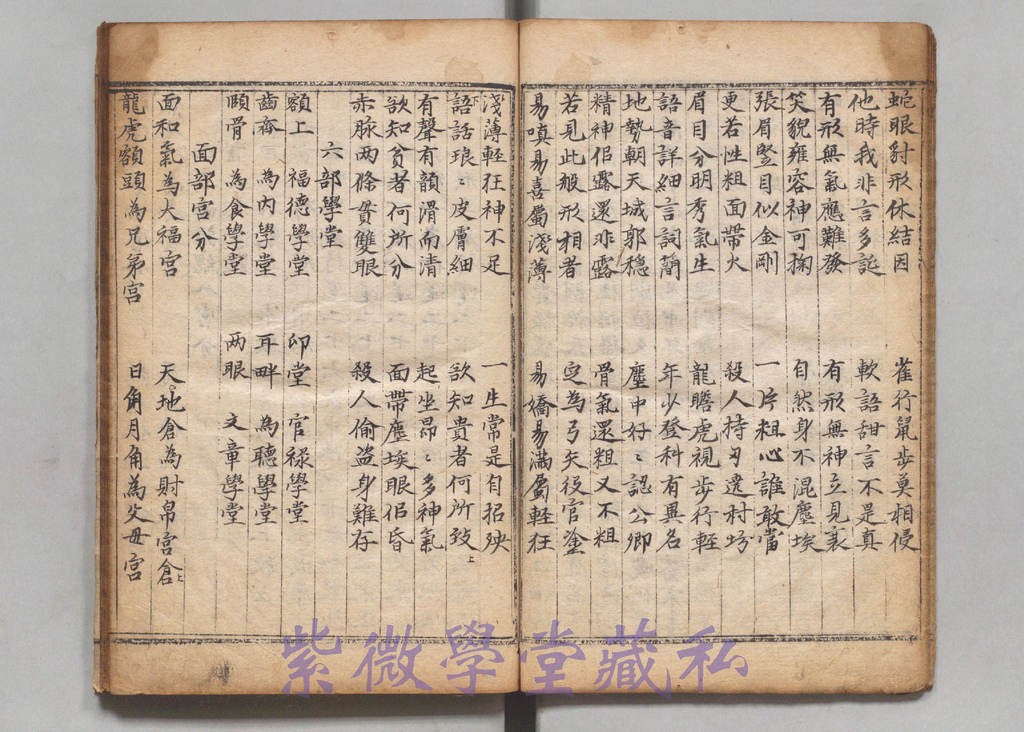 蛇眼豺形休結因　雀行鼠步莫相侵
他時我非言多詑　軟語甜言不是真
有形無氣應難發　有形無神立見衰
笑貌雍容神可掬　自然身不混塵埃
張眉豎目似金剛　一片粗心誰敢當
更若性粗面帶火　殺人持刀遶村坊
眉目分明秀氣生　龍瞻虎視步行輕
語音詳細言詞簡　年少登科有異名
地勢朝天城郭穩　塵中好〻認公卿
精神侶露還非露　骨氣還粗又不粗
若見此般形相者　定為弓矢役官塗
易嗔易喜屬淺薄　易嬌易滿屬輕狂
淺薄輕狂神不足　一生常是自招殃
語話琅〻皮膚細　欲知貴者何所致上
有聲有韻滑而清　起坐昂〻多神氣
欲知貧者何所分　面帶塵埃眼侶昏
赤脉两條貫雙眼　殺人偷盜身難存
六部學堂
額上　福德學堂　印堂　官祿學堂
齒齊　為內學堂　耳畔　為聰學堂
頤骨　為食學堂　两眼　文章學堂
面部宮分
面和氣為大福宮　天地倉為財帛宮倉上
龍虎額頭為兄弟宮　日角月角為父母宮
紫微學堂藏私